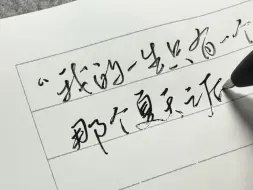 “我的一生只有一个
那个夏天